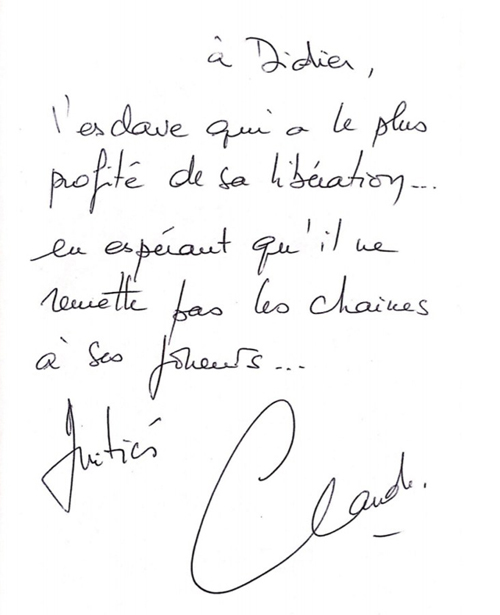 à Didier,
l'esclave qui a le plus
profité de sa libération...
en espérant qu'il ne
remette pas les chaines
à ses joueurs...
Claude.